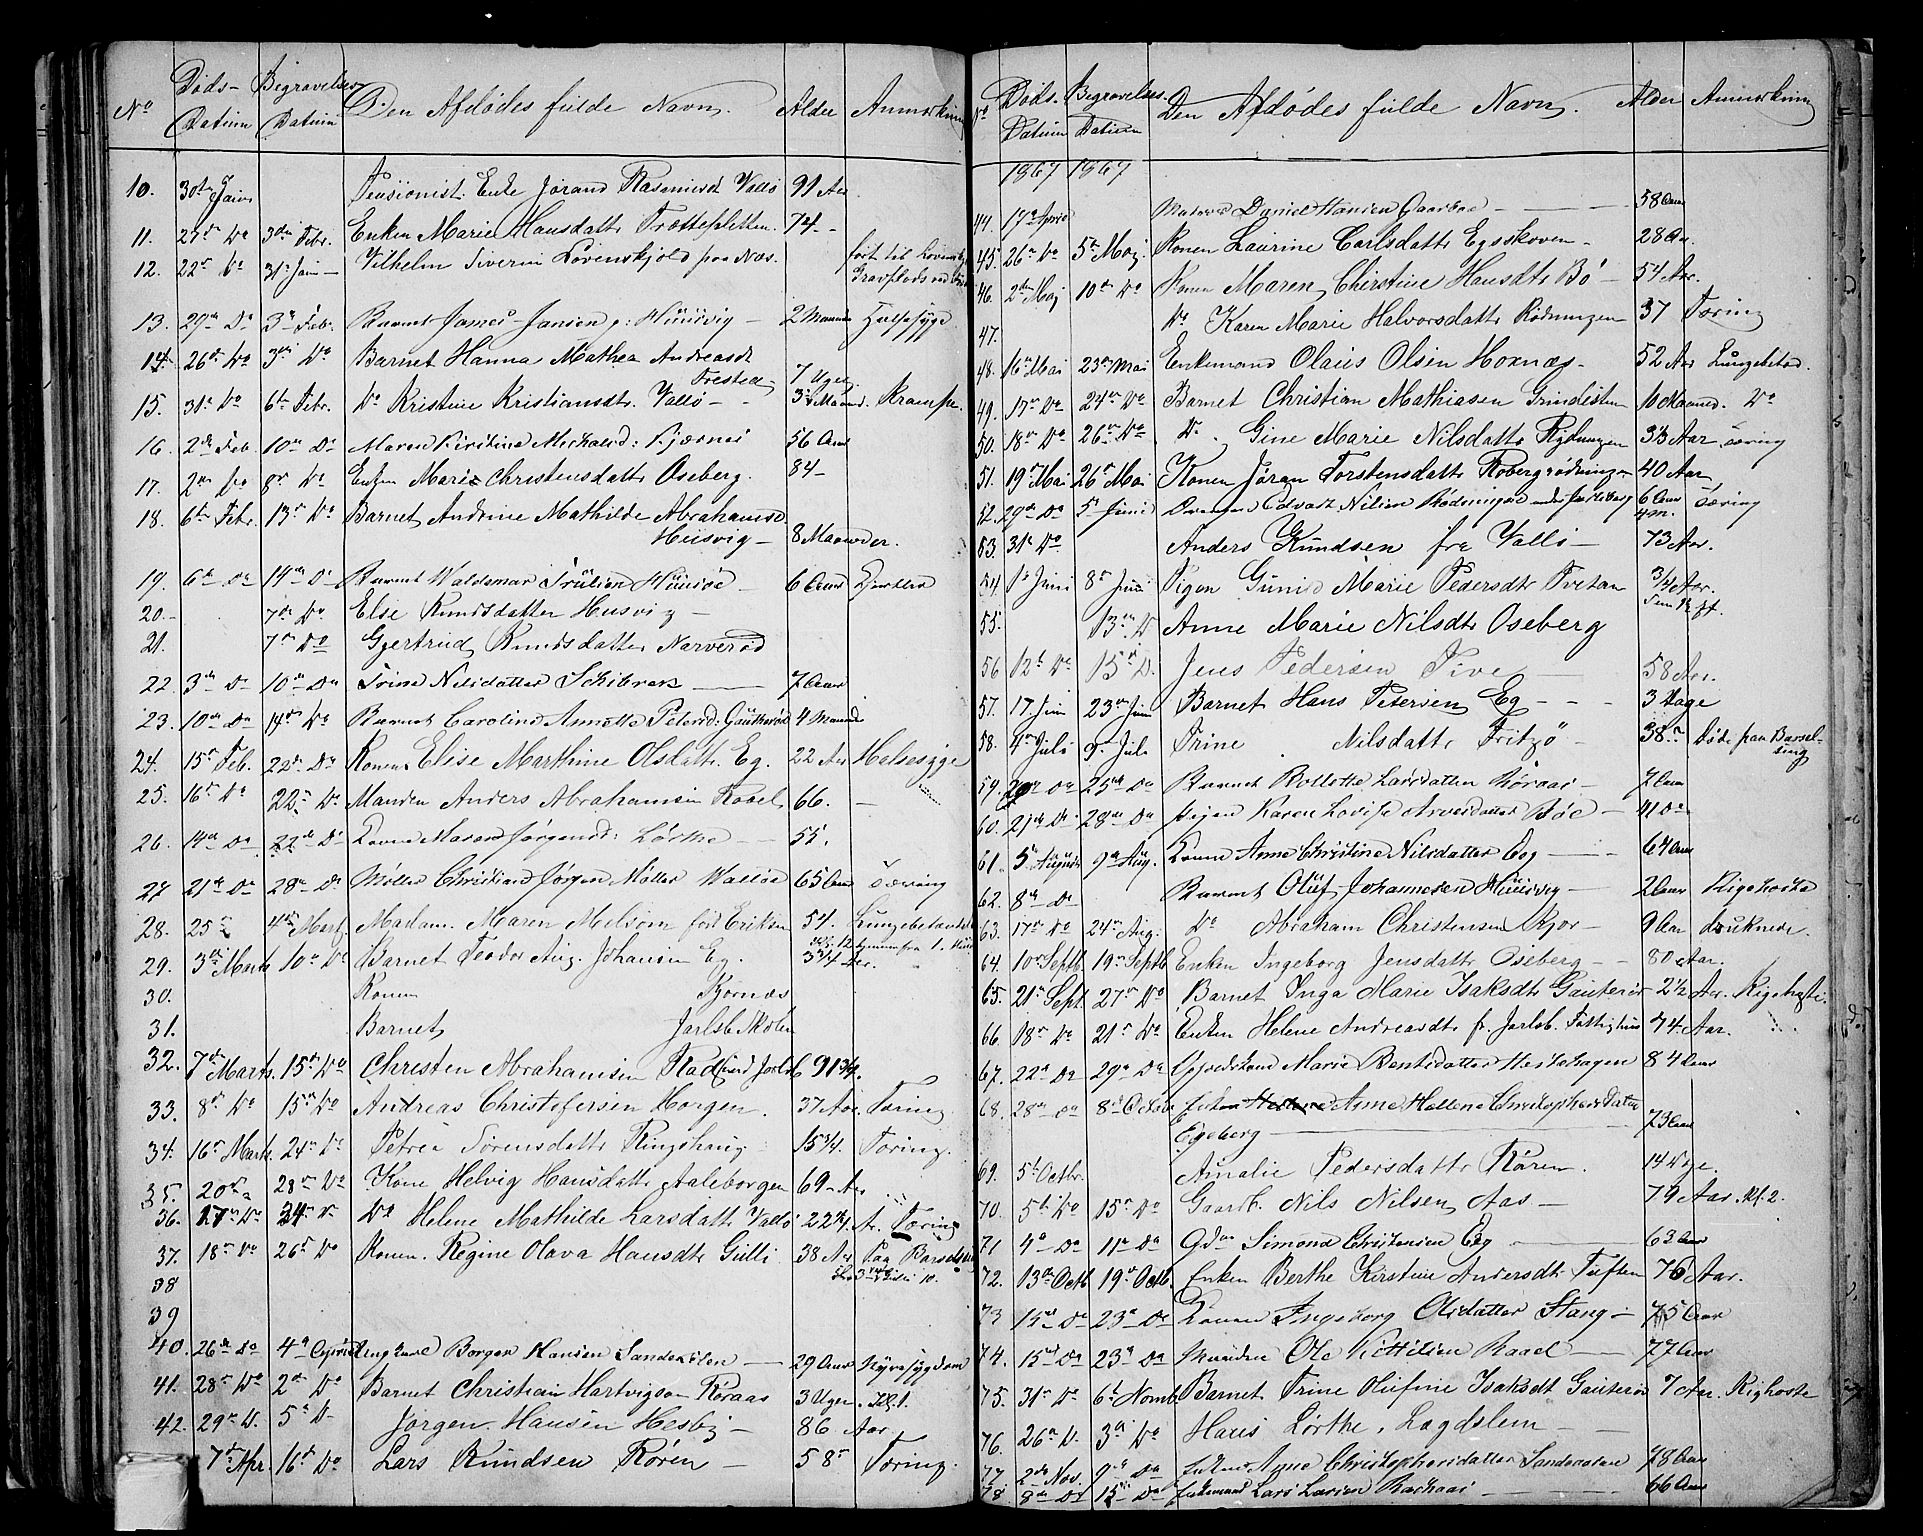 No Døds- Datum Begravelses Datum Den Afdødes fulde Navn. Alder Anmærkning
10. 30te Janr Pensionist Enke Jørand Rasmusd Vallø 91 Aar
11. 27de Do 3die Febr. Enken Marie Hansdattr Trottesletten 74-
12. 22de Do 31te Jan Vilhelm Severin Løvenskjold fra Næs. ført til Løvensk
Gravplads ved
13. 29de Do 3die Feb. Barnet James Jansen Huusvig - 2 Maaneder Halssyge
14. 26de Do 3die Do Barnet Hanna Mathea Andreasd
Trested 7 Uger
15. 31te Do 6te Febr. Do Kristine Kristiansdtr. Vallø - 3 Maaned. Krampe.
16. 2de Feb. 10de Do Maren Kirstine Michaelsd: Kjærnæs 56 Aar
17. 2de Do 8de Do Enken Marie Christensdattr Oseberg. 84-
18. 6te Febr. 13de Do Barnet Andrine Mathilde Abrahamsd
Husvig - 8 Maaneder.
19. 6te Do 14de Do Barnet Waldemar Huusøe 6 Aar
20. 7de Do Else Knudsdatter Husvig -
21. 7de Do Gjertrud Knudsdatter Narverød
22. 3de Do 10de Do Trine Nilsdatter Schibræk 7 Aar
23. 10de Do 14de Do Barnet Caroline Annette Petersd: Gautherød 4 Maaned
24. 15de Feb. 22de Do Konen Elise Marthine Olsdattr. Eg. 22 Aar Halssyge
25. 16de Do 22de Do Manden Anders Abrahamsen Robel 66. -
26. 14de Do 22de Do Konen Maren Jørgensd: Lørthe - 55.
27 21de Do 28de Do Møller Christian Jørgen Møller Walløe 65 Aar Tæring
28. 25de 4de Marts Madam. Maren Melsom fød Eriksen 54. Lungebetændelse
29. 3die Marts 10de Do Barnet Theodor Aug. Johansen Eg. 3 3/4 Aar.
30. Konen Kjørnæs
31. Barnet Jarlsb. Møbler
32. 7de Marts. 15de Do Christen Abrahamsen Rød under Jarlsb 91 3/4.
33. 8de Do 15de Do Andreas Christofersen Horgen. 37 Aar. Tæring.
34. 16de Marts. 24de Do Petrea Sørensdattr Ringshaug 15 3/4. Tæring.
35. 20de 28de Do Kone Helvig Hansdattr Aaleborgen 69 Aar
36. 17de Do 24de Do Do Helene Mathilde Larsdattr Vallø 22 1/4 Ar. Tæring
37. 18de Do 26de Do Konen. Regine Olava Hansdtr Gulli 38 Aar Paa Barselseng
38
39
40. 26de Do 4de April Ungkarl Borger Hansen Sandesolen 29 Aar Nyresygdom
41. 28de Do 2de Do Barnet Christian Hartvigsen Røraas 3 Uger.
42. 29de D. 5te D- Jørgen Hansen Hesby - 86 Aar.
7de Apr. 16de Do Lars Knudsen Røren - 58 Tæring.
No Døds. Datum Begravelses. Datum Den Afdødes fulde Navn. Alder Anmærkning
1867 1867
44. 17de April Matros Daniel Hansen Gaarboe - 58 Aar
45. 26de Do 5te Maj. Konen Laurine Carlsdattr Egsskoven - 28 Aar.
46. 2den Maj 10de Do Konen Maren Christine Hansdtr Bø - 54 Aar.
47. Do Karen Marie Halvorsdattr Rødningen 37 Tæring
48. 16de Mai 23de Mai Enkemand Olaus Olsen Hoxnæs - 52 Aar Lungebetænd.
49. 17de Do 24de Do Barnet Christian Mathiasen Grindesten 10 Maaned. Do
50. 18de Do 26de Do D. Gine Marie Nilsdattr Rydningen 33 Aar Tæring
51. 19de Mai 26de Mai Konen Jøran Torstensdattr Robergrødningen 40 Aar
52. 29de Do 5te Juni Drengen Edvart Nilsen Rødningen under Jarlsberg 6 Aar
4 M. Tæring
53. 31te Do Anders Knudsen fra Vallø - 73 Aar.
54. 1ste Juni 8de Juni Pigen Gunild Marie Pedersdtr Tvetan 3/4 Aar.
55. 13de D. Anne Marie Nilsdtr Oseberg
56 12te Do 15de D. Jens Pedersen Tive 58 Aar.
57. 17. Juni 23de Juni Barnet Hans Petersen Eg - - - 3 Dage
58. 4de Juli 9de Juli Trine Nilsdattr Fritzø - 38 Døde paa Barsel-
seng
59. 20de Do 25de Do Barnet Larsdatter Røraas - 7 Aar
60. 21de Do 28de Do Pigen Karen Lovise Arvesdatter Bøe - 41 Do
61. 5te August 9de Aug. Konen Anne Christine Nilsdatter Eeg - 64 Aar
62. 8de Do Barnet Oluf Johannesen Huusvig - 2 Aar Kighoste
63. 17de Do 24de Aug. Do Abraham Christensen Kjær - 9 Aar druknede.
64. 10de Septb. 19de Septb Enken Ingeborg Jensdattr Oseberg - - 80 Aar.
65. 21de Sept. 27de Do Barnet Inga Marie Isaksdtr Gauterø - 2 1/2 Ar. Kighoste.
66. 18de Do 21de Do Enken Helene Andreasdtr fr. Jarlsb. Fattighus 74 Aar.
67. 22de Do 29de Do Marie Bentsdatter Hestehagen 84 Aar
68. 28de Do 8de Octobr Enken Anne Hellene Christophersdatter
Egeberg - 73 Aar
69. 5te Octbr. Amalie Pedersdattr Røren. 14 Dage.
70. 5te Do 15de Do Gaardb. Nils Nilsen Aas - 79 Aar.
71 4de Do 11de Do Simond Christensen Eeg 63 Aar
72. 13de Octb 19de Octb. Enken Berthe Kirstine Andersdtr Tuften 76 Aar.
73 15de Do 23de Do Konen Ingeborg Olsdatter Stang - 75 Aar
74. 15de Do 23de Do Manden Ole Kittilsen Raael - 77 Aar
75. 31te Do 6te Novmb. Barnet Trine Olufine Isaksdt Gauterø 7 Aar. Kighoste
76. 26de D. 3die Do Hans Lørthe, Lagdslem -
77 2de Nov. 9de Do Enken Anne Christophersdatter Sandeaasen 78 Aar
78. 8de Do 15de Do Enkemand Lars Larsen Barkaas - 66 Aar